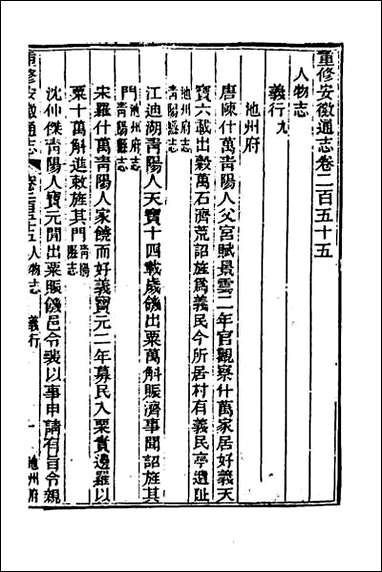 重修安徽通志卷二百五十五
人物志
義行九
池州府
唐陳什萬青陽人父宮賦景雲二年官觀察什萬家居好義天
寶六載出穀萬石濟荒詔旌爲義民今所居村有義民亭遺址
池州府志
青陽縣志
江迪湖青陽人天寶十四載歲饑出粟萬斛賑濟事聞詔旌其
門池州府志
青陽縣志
宋羅什萬青陽人家饒而好義寶元二年募民入粟實邊羅以
粟十萬斛進敕旌其門青陽
縣志
沈仲傑青陽人寶元閒出粟賑饑邑令裴以事申請有旨令親
重修安徽通志 卷二百五十五 人物志 義行 一 池州府